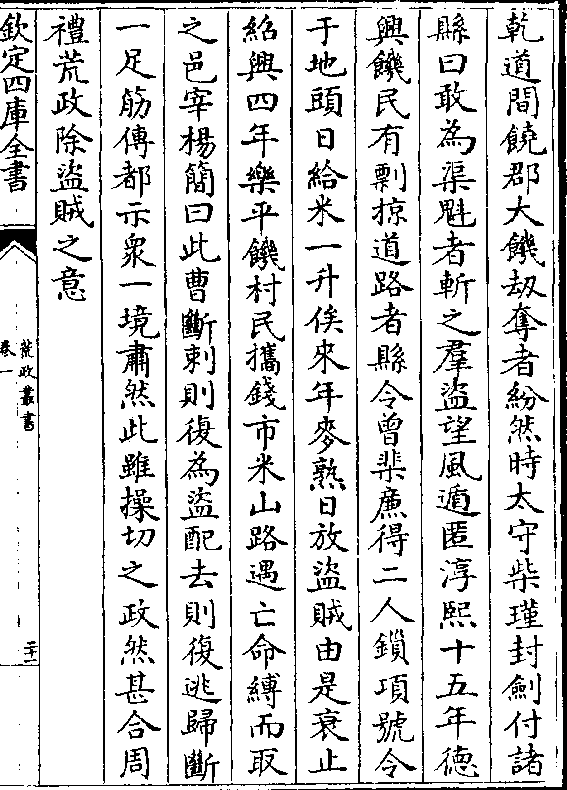 乾道間饒郡大饑刼奪者紛然時太守柴瑾封劍付諸
縣曰敢為渠魁者斬之羣盜望風遁匿淳熙十五年德
興饑民有剽掠道路者縣令曾棐廉得二人鎖項號令
于地頭日給米一升俟來年麥熟日放盜賊由是衰止
紹興四年樂平饑村民攜錢市米山路遇亡命縛而取
之邑宰楊簡曰此曹斷刺則復為盜配去則復逃歸斷
一足筋傳都示衆一境肅然此雖操切之政然甚合周
禮荒政除盜賊之意
欽定四庫全書
荒政叢書
卷一
二十一